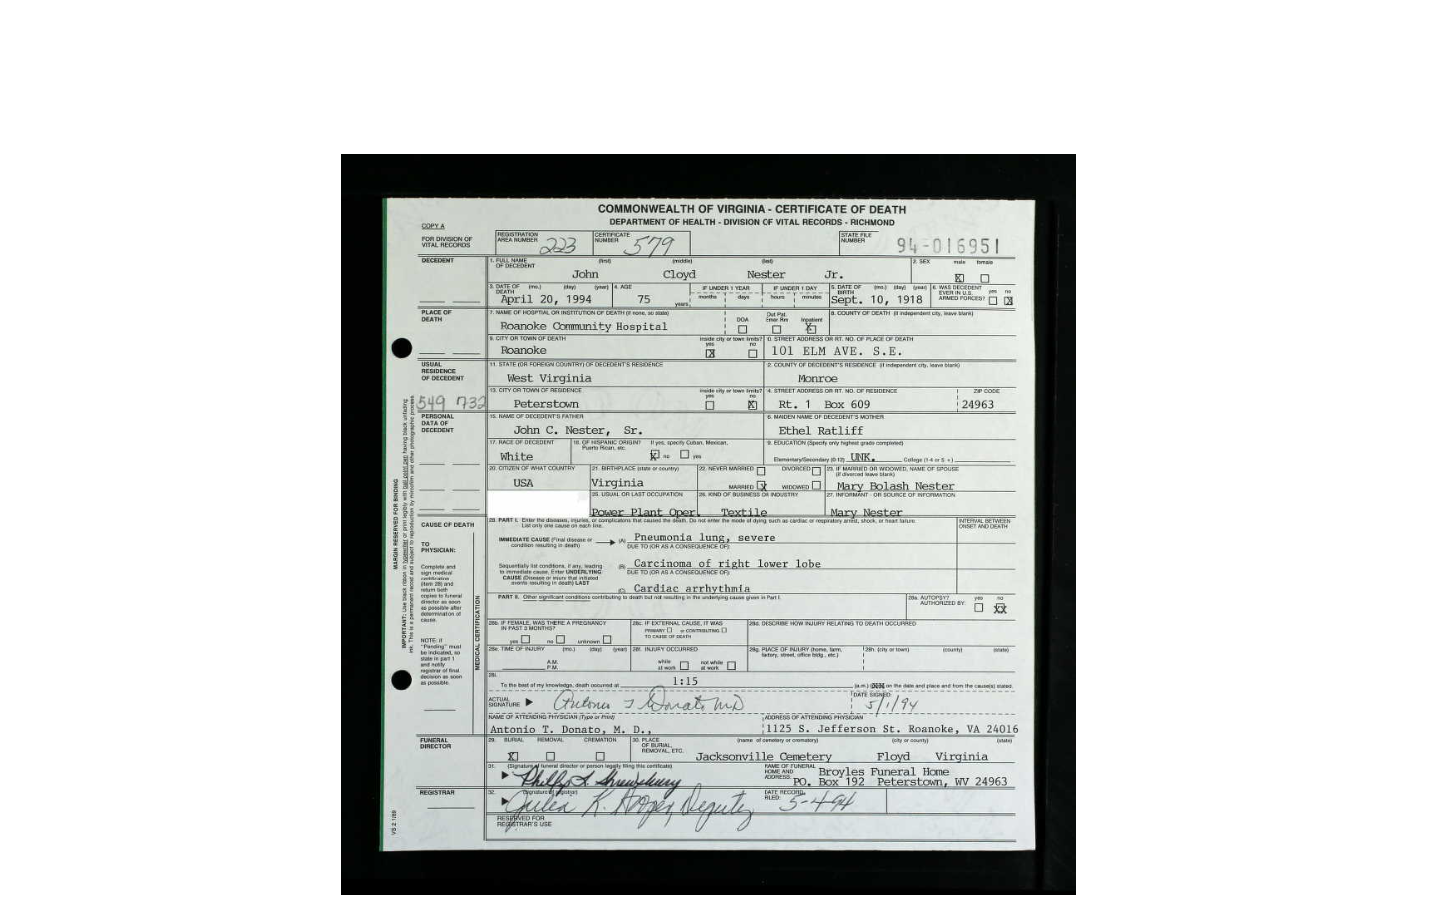 COMMONWEALTH OF VIRGINIA - CERTIFICATE OF DEATH
DEPARTMENT OF HEALTH - DIVISION OF VITAL RECORDS - RICHMOND
COPY A
FOR DIVISION OF VITAL RECORDS
REGISTRATION AREA NUMBER 223 CERTIFICATE NUMBER 579 STATE FILE NUMBER 94-016951
DECEDENT
1. FULL NAME OF DECEDENT (first) (middle) (last) 2. SEX male female
John Cloyd Nester Jr. X
3. DATE OF DEATH (mo.) (day) (year) 4. AGE IF UNDER 1 YEAR IF UNDER 1 DAY 5. DATE OF BIRTH (mo.) (day) (year) 6. WAS DECEDENT EVER IN U.S. ARMED FORCES? yes no
months days hours minutes
April 20, 1994 75 years Sept. 10, 1918 X
PLACE OF DEATH
7. NAME OF HOSPITAL OR INSTITUTION OF DEATH (if none, so state) DOA Out Pat. Emer Rm Inpatient 8. COUNTY OF DEATH (if independent city, leave blank)
Roanoke Community Hospital X
9. CITY OR TOWN OF DEATH inside city or town limits? yes no 0. STREET ADDRESS OR RT. NO. OF PLACE OF DEATH
Roanoke X 101 ELM AVE. S.E.
USUAL RESIDENCE OF DECEDENT
11. STATE (OR FOREIGN COUNTRY) OF DECEDENT'S RESIDENCE 2. COUNTY OF DECEDENT'S RESIDENCE (if independent city, leave blank)
West Virginia Monroe
13. CITY OR TOWN OF RESIDENCE inside city or town limits? yes no 4. STREET ADDRESS OR RT. NO. OF RESIDENCE ZIP CODE
549 732 Peterstown X Rt. 1 Box 609 24963
PERSONAL DATA OF DECEDENT
15. NAME OF DECEDENT'S FATHER 6. MAIDEN NAME OF DECEDENT'S MOTHER
John C. Nester, Sr. Ethel Ratliff
17. RACE OF DECEDENT 18. OF HISPANIC ORIGIN? If yes, specify Cuban, Mexican, Puerto Rican, etc. 9. EDUCATION (Specify only highest grade completed)
White X no yes Elementary/Secondary (0-12) UNK. College (1-4 or 5 +)
20. CITIZEN OF WHAT COUNTRY 21. BIRTHPLACE (state or country) 22. NEVER MARRIED DIVORCED 23. IF MARRIED OR WIDOWED, NAME OF SPOUSE (if divorced leave blank)
USA Virginia MARRIED X WIDOWED Mary Bolash Nester
25. USUAL OR LAST OCCUPATION 26. KIND OF BUSINESS OR INDUSTRY 27. INFORMANT - OR SOURCE OF INFORMATION
Power Plant Oper. Textile Mary Nester
CAUSE OF DEATH
28. PART I. Enter the diseases, injuries, or complications that caused the death. Do not enter the mode of dying such as cardiac or respiratory arrest, shock, or heart failure. INTERVAL BETWEEN ONSET AND DEATH
List only one cause on each line.
IMMEDIATE CAUSE (Final disease or condition resulting in death) (A) Pneumonia lung, severe
DUE TO (OR AS A CONSEQUENCE OF):
Sequentially list conditions, if any, leading to immediate cause. Enter UNDERLYING CAUSE (Disease or injury that initiated events resulting in death) LAST
(B) Carcinoma of right lower lobe
DUE TO (OR AS A CONSEQUENCE OF):
(C) Cardiac arrhythmia
PART II. Other significant conditions contributing to death but not resulting in the underlying cause given in Part I. 28a. AUTOPSY? AUTHORIZED BY: yes no XX
TO PHYSICIAN:
Complete and sign medical certification (item 28) and return both copies to funeral director as soon as possible after determination of cause.
NOTE: if "Pending" must be indicated, so state in part 1 and notify registrar of final decision as soon as possible.
MEDICAL CERTIFICATION
MARGIN RESERVED FOR BINDING
28b. IF FEMALE, WAS THERE A PREGNANCY IN PAST 3 MONTHS? 28c. IF EXTERNAL CAUSE, IT WAS 28d. DESCRIBE HOW INJURY RELATING TO DEATH OCCURRED
yes no unknown PRIMARY or CONTRIBUTING TO CAUSE OF DEATH
28e. TIME OF INJURY (mo.) (day) (year) 28f. INJURY OCCURRED 28g. PLACE OF INJURY (home, farm, factory, street, office bldg., etc.) 28h. (city or town) (county) (state)
A.M. P.M. while at work not while at work
28i. To the best of my knowledge, death occurred at 1:15 (a.m.) on the date and place and from the cause(s) stated.
ACTUAL SIGNATURE Antonio T Donato MD DATE SIGNED: 5/1/94
NAME OF ATTENDING PHYSICIAN (Type or Print) ADDRESS OF ATTENDING PHYSICIAN
Antonio T. Donato, M. D., 1125 S. Jefferson St. Roanoke, VA 24016
FUNERAL DIRECTOR
29. BURIAL REMOVAL CREMATION 30. PLACE OF BURIAL, REMOVAL, ETC. (name of cemetery or crematory) (city or county) (state)
X Jacksonville Cemetery Floyd Virginia
31. (Signature of funeral director or person legally filing this certificate) NAME OF FUNERAL HOME AND ADDRESS: Broyles Funeral Home
Phillip L. Shrewsbury PO. Box 192 Peterstown, WV 24963
REGISTRAR
32. (Signature of registrar) DATE RECORD FILED: 5-4-94
Julia K. Deputy
RESERVED FOR REGISTRAR'S USE
VS 2 1/89